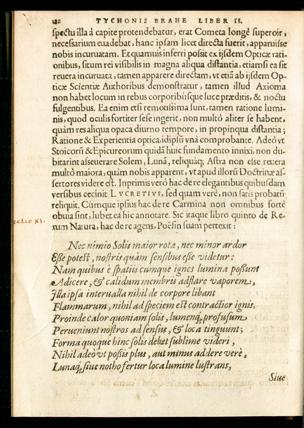 182 TYCHONIS BRAHE LIBER II.
spectu illa à capite protendebatur, erat Cometa longè superoir,
necessarium evadebat, hanc ipsam licet directa fuerit, apparuisse
nobis incurvatam. Et quamvis inferri possit ex ijsdem Opticæ rati-
onibus, situm rei visibilis in magna aliqua distantia, etiamsi ea sit
revera incurvata, tamen apparere directam, ut etiā ab ijsdem Op-
ticæ Scientiæ Authoribus demonstratur, tamen illud Axioma
non habet locum in rebus corporibusq́ue luce præditis, & noctu
fulgentibus. Ea enim etsi remotissima sunt, tamen ratione lumi-
nis, quod oculis fortiter sese ingerit, non multò aliter se habent,
quàm res aliqua opaca diurno tempore, in propinqua distantia;
Ratione & Experientia optica id ipsū
Stoicorū & Epicureorum quidā huic fundamento innixi non du-
bitarint asseverare Solem, Lunā, reliquaq; Astra non esse revera
multò maiora, quàm nobis apparent, ut apud illorū Doctrinæ as-
sertores videre est. Inprimis verò hac de re elegantibus quibusdam
versibus cecinit LVCRETIVS, sed quam verè, non satis probatū
reliquit. Cùmque ipsius hac de re Carmina non omnibus fortè
obvia sint, lubet ea hîc annotare. Sic itaque libro quinto de Re-
rum Natura, hac de re agens, Poësin suam pertexit:
Nec nimio Solis maior rota, nec minor ardor
Esse potest, nostris quàm sensibus esse videtur:
Nam quibus è spatiis cumque ignes lumina possunt
Adicere, & calidum membris adflare vaporem,
Illa ipsa intervalla nihil de corpore libant
Flammarum, nihil ad speciem est contractior ignis.
Proinde calor quoniam solis, lumenq́; profusum
Perveniunt nostros ad sensus, & loca tinguunt;
Forma quoque hinc solis debet sublime videri,
Nihil adeo ut possis plus, aut minus addere verè,
Lunaq́; sive notho fertur loca lumine lustrans,
Sive